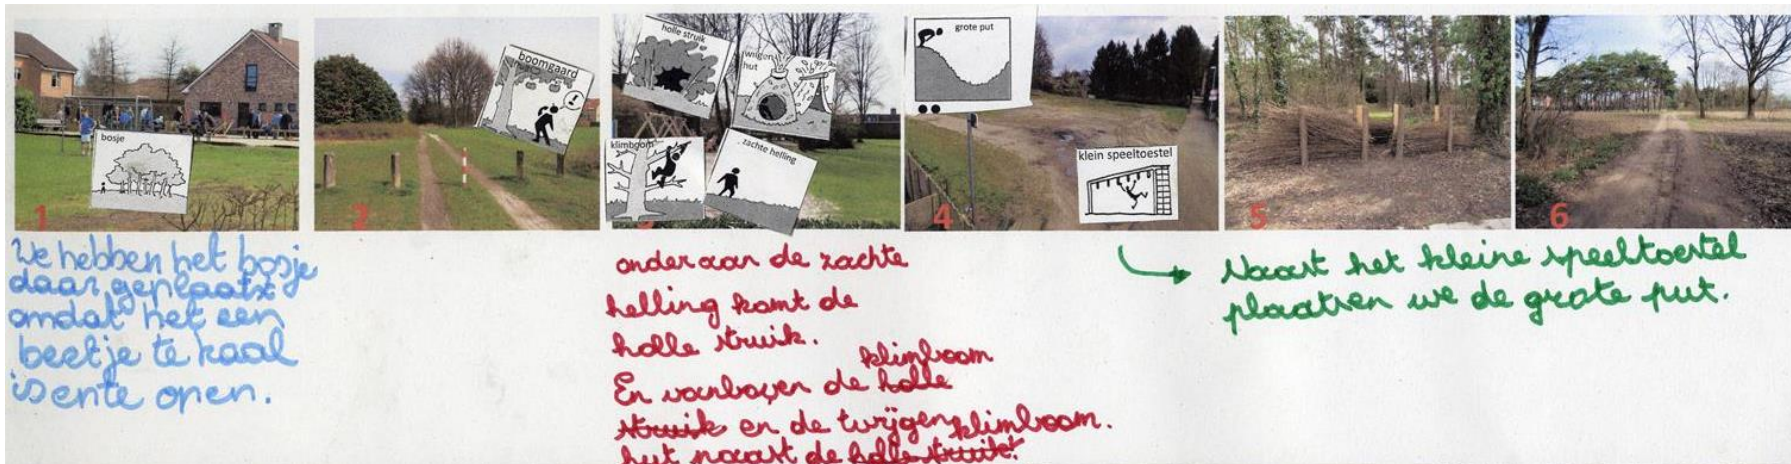 bosje
1
boomgaard
2
holle struik
wilgen
hut
klimboom
zachte helling
3
grote put
klein speeltoestel
4
5
6
We hebben het bosje
daar geplaatst
omdat het een
beetje te kaal
is en te open.
onderaan de zachte
helling komt de
holle struik.
klimboom
En vanboven de holle
struik en de twijgen klimboom.
hut naast de holle struik!
Naast het kleine speeltoestel
plaatsen we de grote put.